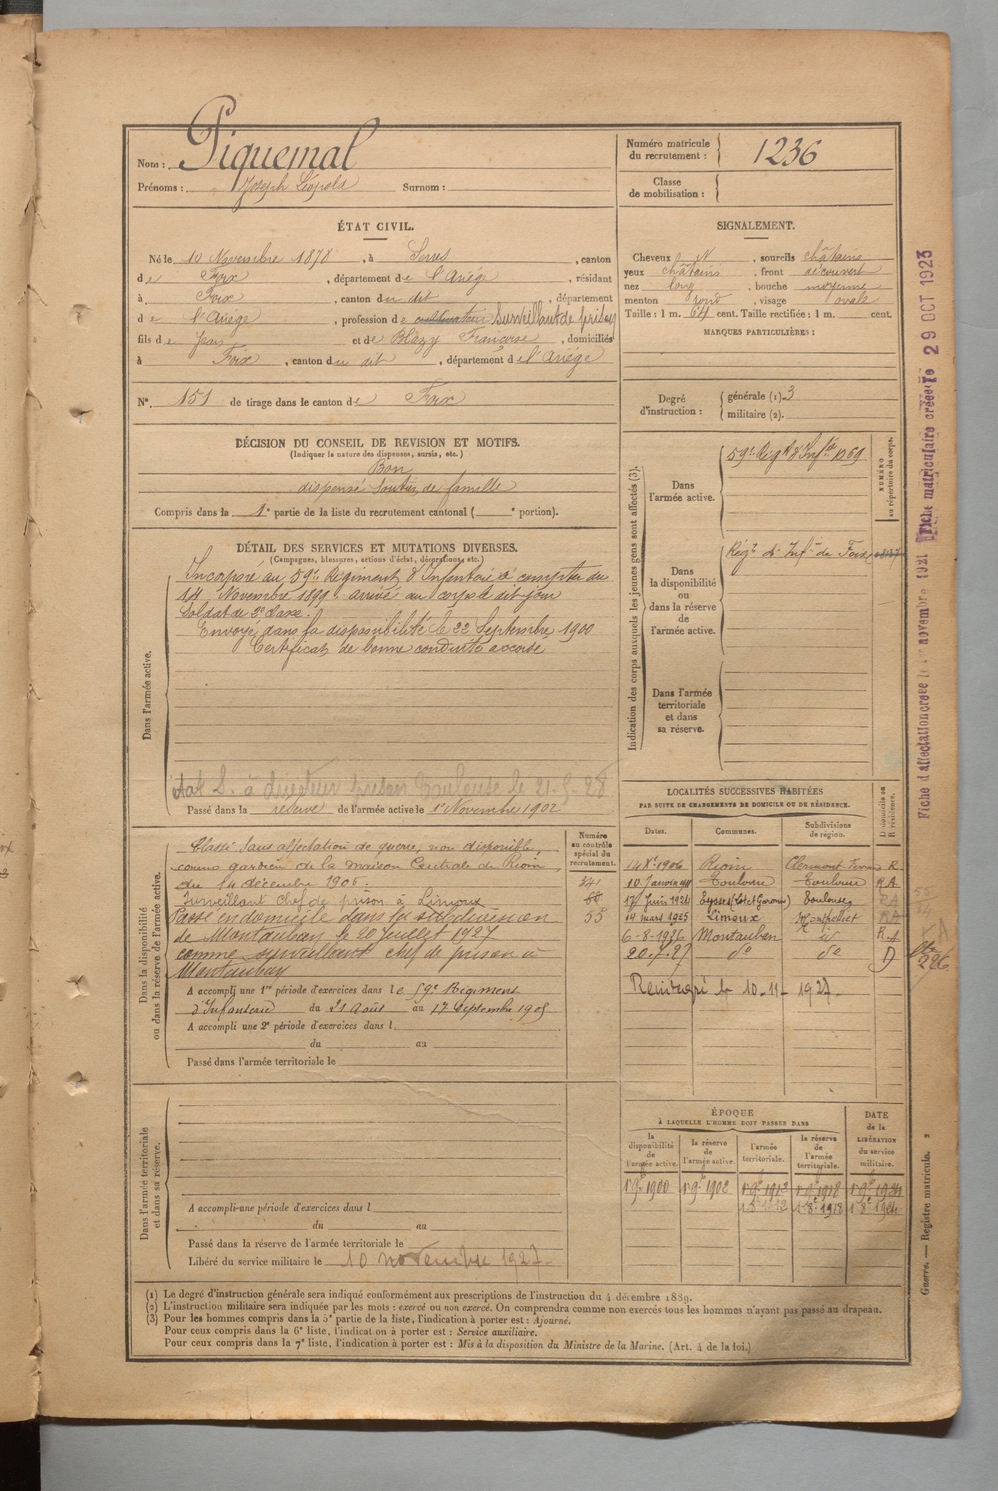 Nom : Piquemal
Prénoms : Joseph Léopold Surnom :
Numéro matricule du recrutement : 1236
Classe de mobilisation :
ÉTAT CIVIL.
Né le 10 Novembre 1878, à Serres, canton
de Foix, département de l'Ariège, résidant
à Foix, canton du dit, département
de l'Ariège, profession de cultivateur Surveillant de prison
fils de Jean et de Blazy Françoise, domiciliés
à Foix, canton du dit, département de l'Ariège
N° 151 de tirage dans le canton de Foix
SIGNALEMENT.
Cheveux N, sourcils châtains
yeux châtains, front découvert
nez long, bouche moyenne
menton rond, visage ovale
Taille : 1 m. 64 cent. Taille rectifiée : 1 m. cent.
MARQUES PARTICULIÈRES :
Degré d'instruction : générale (1) 3
militaire (2).
DÉCISION DU CONSEIL DE REVISION ET MOTIFS.
(Indiquer la nature des dispenses, sursis, etc.)
Bon
dispensé soutien de famille
Compris dans la 1e partie de la liste du recrutement cantonal ( e portion).
DÉTAIL DES SERVICES ET MUTATIONS DIVERSES.
(Campagnes, blessures, actions d'éclat, décorations, etc.)
Dans l'armée active.
Incorporé au 59e Régiment d'Infanterie à compter du
14 Novembre 1899. arrivé au corps le dit jour
Soldat de 2e classe.
Envoyé dans la disponibilité le 22 Septembre 1900
Certificat de bonne conduite accordé
à directeur prison Toulouse le
Passé dans la réserve de l'armée active le 1er Novembre 1902
Indication des corps auxquels les jeunes gens sont affectés (3).
NUMÉRO au répertoire du corps.
Dans l'armée active.
59e Régt d'Inftie 1369
Dans la disponibilité ou dans la réserve de l'armée active.
Régt d'Inf. de Foix
Dans l'armée territoriale et dans sa réserve.
Dans la disponibilité ou dans la réserve de l'armée active.
Classé sans affectation de guerre, non disponible,
comme gardien de la maison Centrale de Riom,
du 14 décembre 1906.
Surveillant chef de prison à Limoux
Passé en domicile dans la subdivision
de Montauban le 20 Juillet 1927
comme surveillant chef de prison à
Montauban
Numéro au contrôle spécial du recrutement.
55
A accompli une 1re période d'exercices dans le 59e Régiment
d'Infanterie du 21 Août au 17 Septembre 1905
A accompli une 2e période d'exercices dans l
du au
Passé dans l'armée territoriale le
LOCALITÉS SUCCESSIVES HABITÉES
PAR SUITE DE CHANGEMENTS DE DOMICILE OU DE RÉSIDENCE.
Dates. Communes. Subdivisions de région. D domicile ou R résidence.
1906 Riom Clermont-Ferrand R
10 Janvier Toulouse Toulouse R A
17 Juin 1924 Eysses (Lot et Garonne) Toulouse R A
19 mars 1925 Limoux Montpellier R A
6-8-1926 Montauban id R A
20.7.27 do do D
10-11-1927
Dans l'armée territoriale et dans sa réserve.
A accompli une période d'exercices dans l
du au
Passé dans la réserve de l'armée territoriale le
Libéré du service militaire le 10 novembre 1927
ÉPOQUE
À LAQUELLE L'HOMME DOIT PASSER DANS
la disponibilité de l'armée active. la réserve de l'armée active. l'armée territoriale. la réserve de l'armée territoriale. DATE de la LIBÉRATION du service militaire.
1er 9bre 1900 1er 9bre 1902 1er 9bre 1912 1er 9bre 1918 1er 9bre 1924
(1) Le degré d'instruction générale sera indiqué conformément aux prescriptions de l'instruction du 4 décembre 1889.
(2) L'instruction militaire sera indiquée par les mots : exercé ou non exercé. On comprendra comme non exercés tous les hommes n'ayant pas passé au drapeau.
(3) Pour les hommes compris dans la 5e partie de la liste, l'indication à porter est : Ajourné.
Pour ceux compris dans la 6e liste, l'indication à porter est : Service auxiliaire.
Pour ceux compris dans la 7e liste, l'indication à porter est : Mis à la disposition du Ministre de la Marine. (Art. 4 de la loi.)
Fiche d'affectation créée le 1er novembre 1921 Fiche matriculaire créée le 29 OCT 1923
Guerre. — Registre matricule. 2